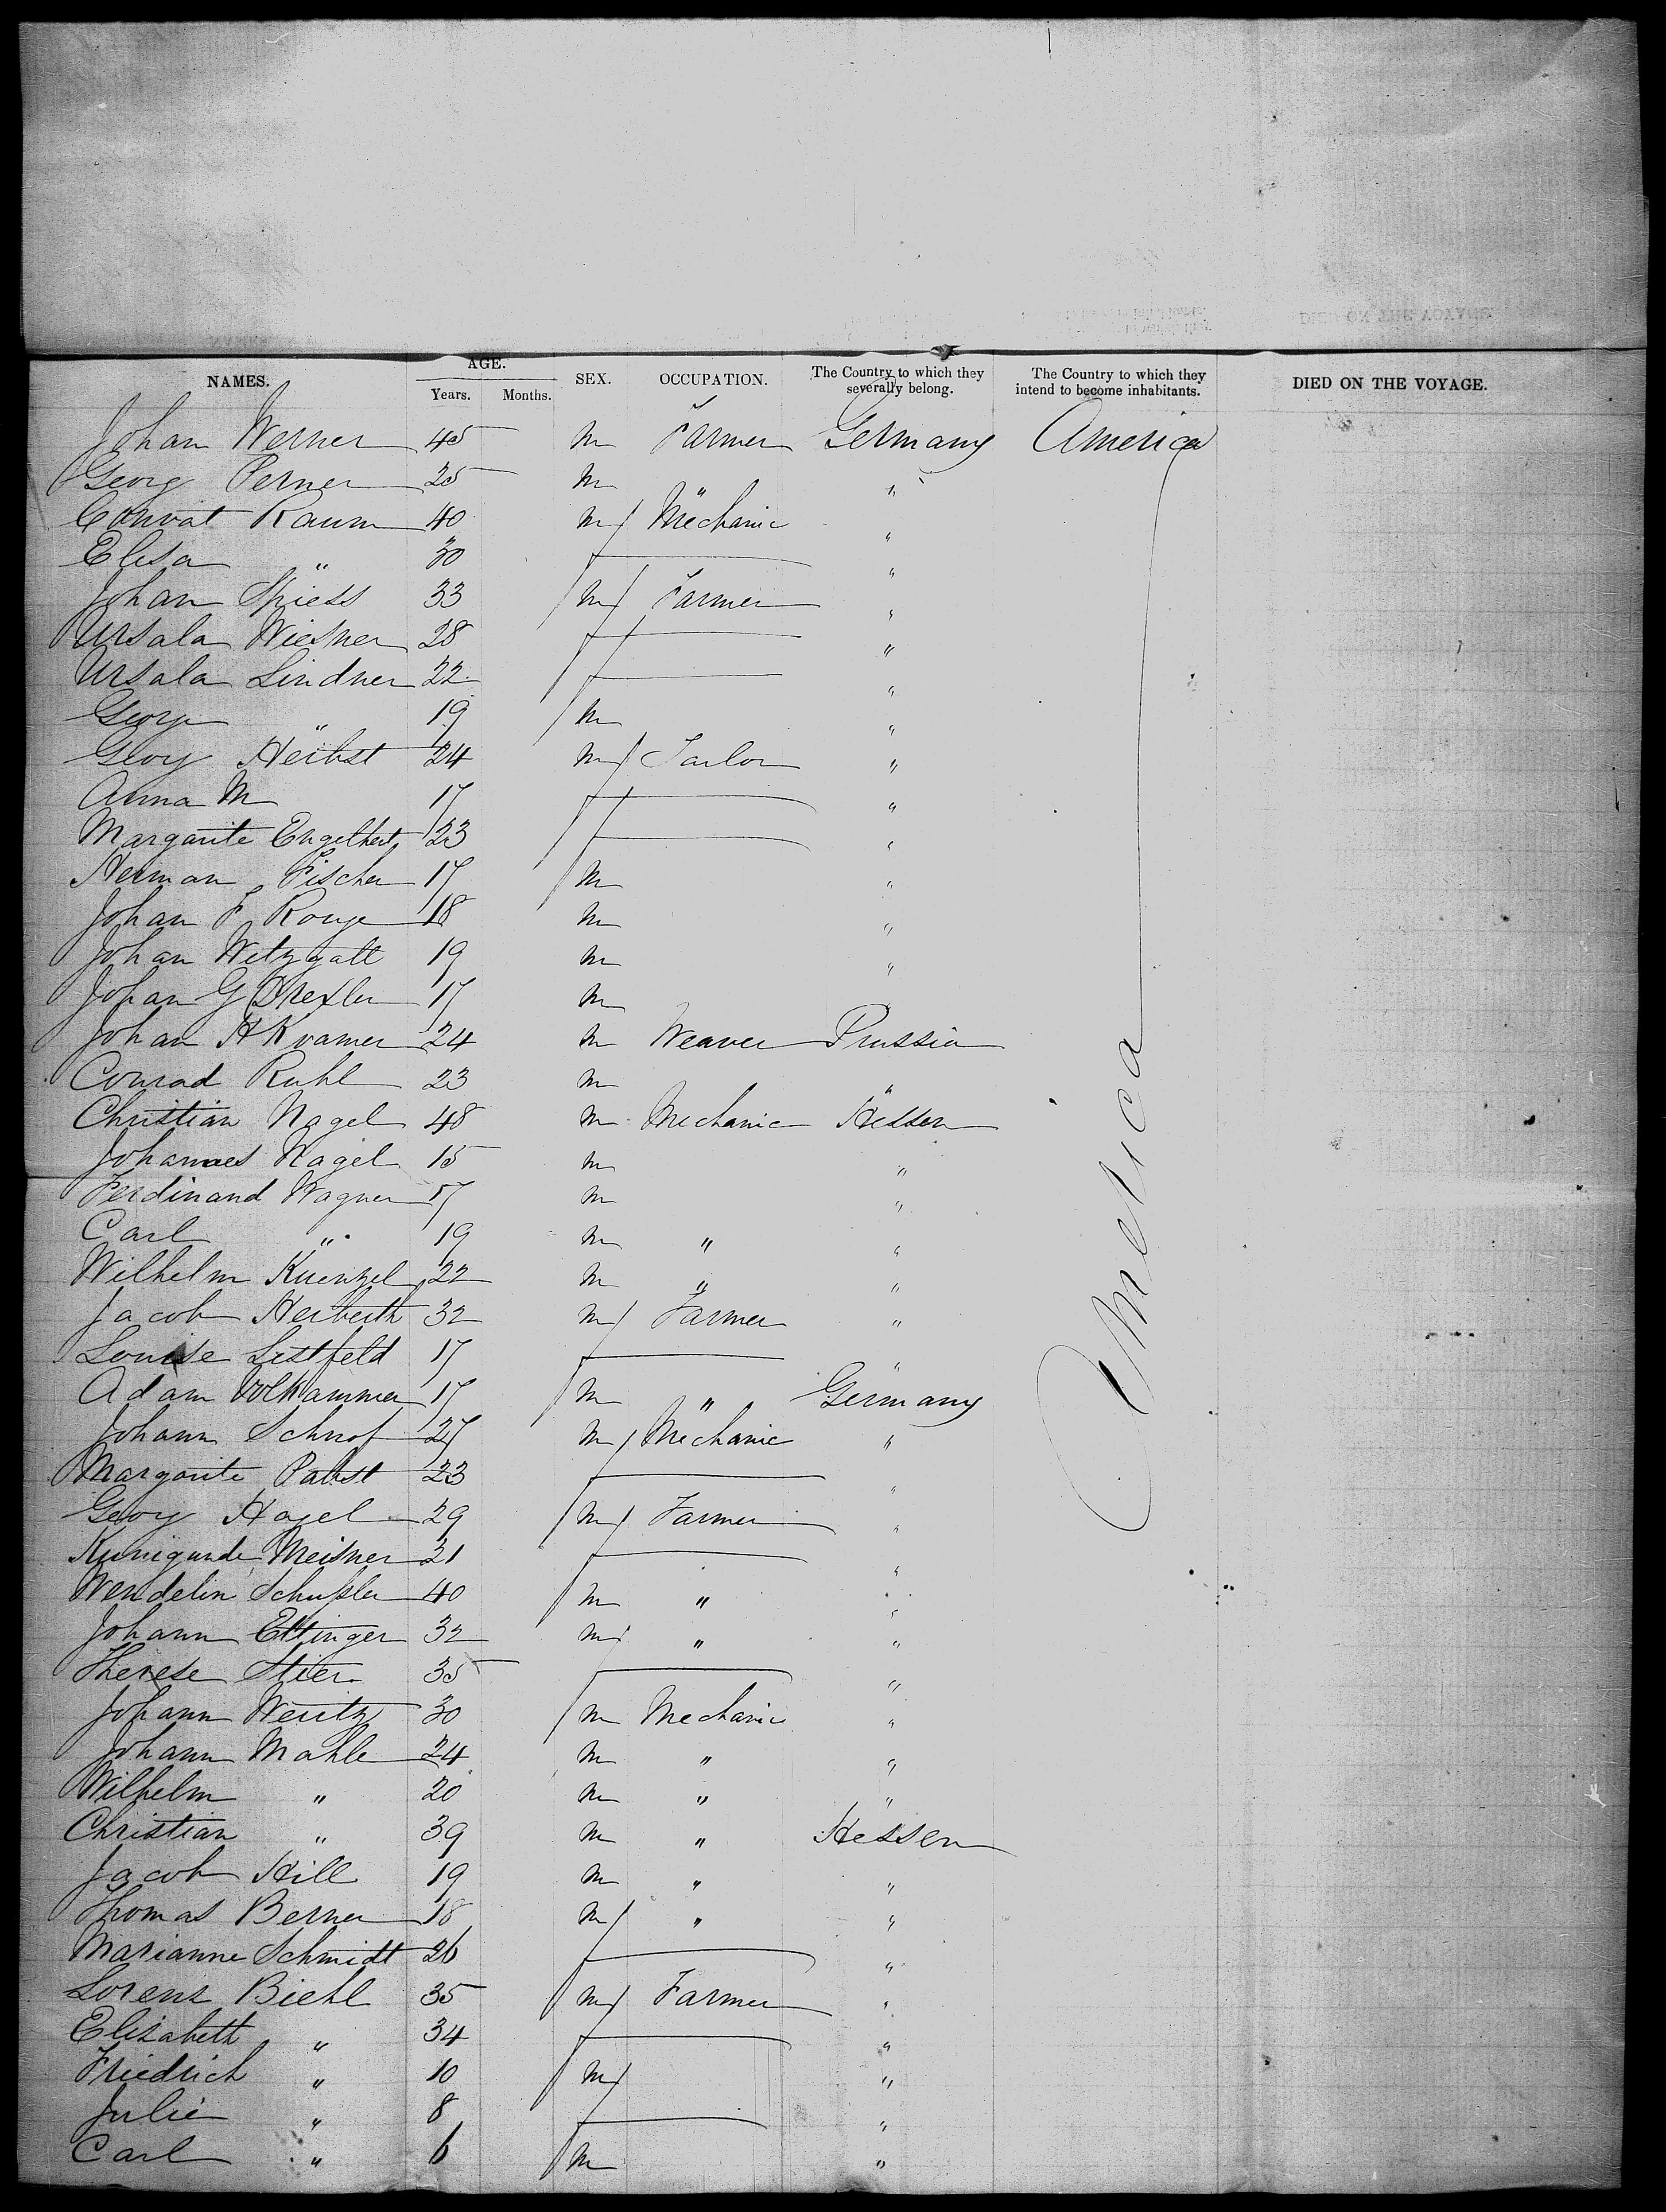 NAMES. AGE. Years. Months. SEX. OCCUPATION. The Country to which they severally belong. The Country to which they intend to become inhabitants. DIED ON THE VOYAGE.
Johan Werner 45 m Farmer Germany America
Georg Perner 25 m " "
Convat Raum 40 m Mechanic "
Elisa " 30 f "
Johan Spiess 33 m Farmer "
Ursala Wiesner 28 f "
Ursala Lindner 22 f "
George " 19 m "
Georg Herbst 24 m Tailor "
Anna M 17 f "
Margarite Engelhert 23 f "
Herman Fischer 17 m "
Johan F 18 m "
Johan Wetzgall 19 m "
Johan G Drexler 17 m
Johan H Kramer 24 m Weaver Prussia
Conrad Ruhl 23 m "
Christian Nagel 48 m Mechanic Hessen
Johannes Nagel 15 m "
Ferdinand Wagner 17 m "
Carl " 19 m " "
Wilhelm Kuenzel 22 m " "
Jacob Herberth 32 m Farmer "
Louise Lestfeld 17 f "
Adam Volkammer 17 m " Germany
Johann 27 m Mechanic "
Margarite Pabst 23 f "
Georg Hagel 29 m Farmer "
Kunigunde Meisner 21 f "
Wendelin Schussler 40 m " "
Johann Ettinger 32 m " "
Therese Stier 35 f "
Johann Wentz 30 m Mechanic "
Johann Mahle 24 m " "
Wilhelm " 20 m " "
Christian " 39 m " Hessen
Jacob Hill 19 m " "
Thomas Berner 18 m " "
Marianne Schmidt 26 f "
Lorenz Biehl 35 m Farmer "
Elisabeth " 34 f "
Friedrich " 10 m "
Julie " 8 f "
Carl " 6 m "
America